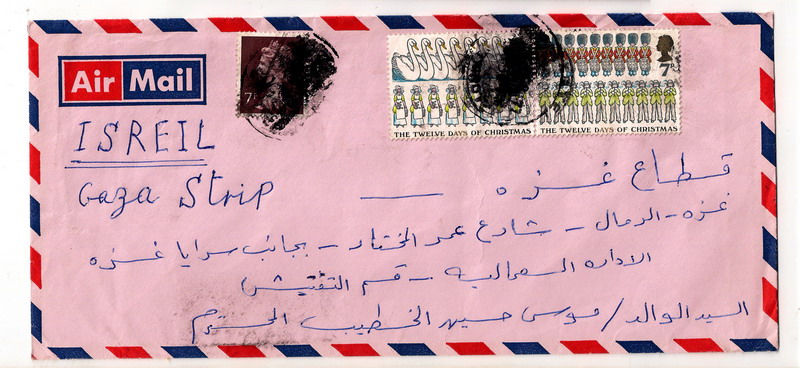 Air Mail
7½
7
THE TWELVE DAYS OF CHRISTMAS THE TWELVE DAYS OF CHRISTMAS
ISREIL
Gaza Strip — قطاع غزه
غزه - الرمال - شارع عمر المختار - بجانب سرايا غزه
الاداره الماليه - قسم التفتيش
السيد الوالد / موسى حسين الخطيب المحترم